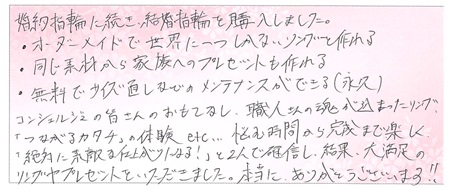 婚約指輪に続き、結婚指輪を購入しました。
・オーダーメイドで世界に一つしかないリングを作れる
・同じ素材から家族へのプレゼントも作れる
・無料でサイズ直しなどのメンテナンスができる(永久)
コンシェルジュの皆さんのおもてなし、職人さんの魂が込まったリング、
「つながるカタチ」の体験 etc... 悩む時間から完成まで楽しく、
「絶対に素敵な仕上がりになる!」と2人で確信し、結果、大満足の
リングやプレゼントをいただきました。本当に、ありがとうございます!!